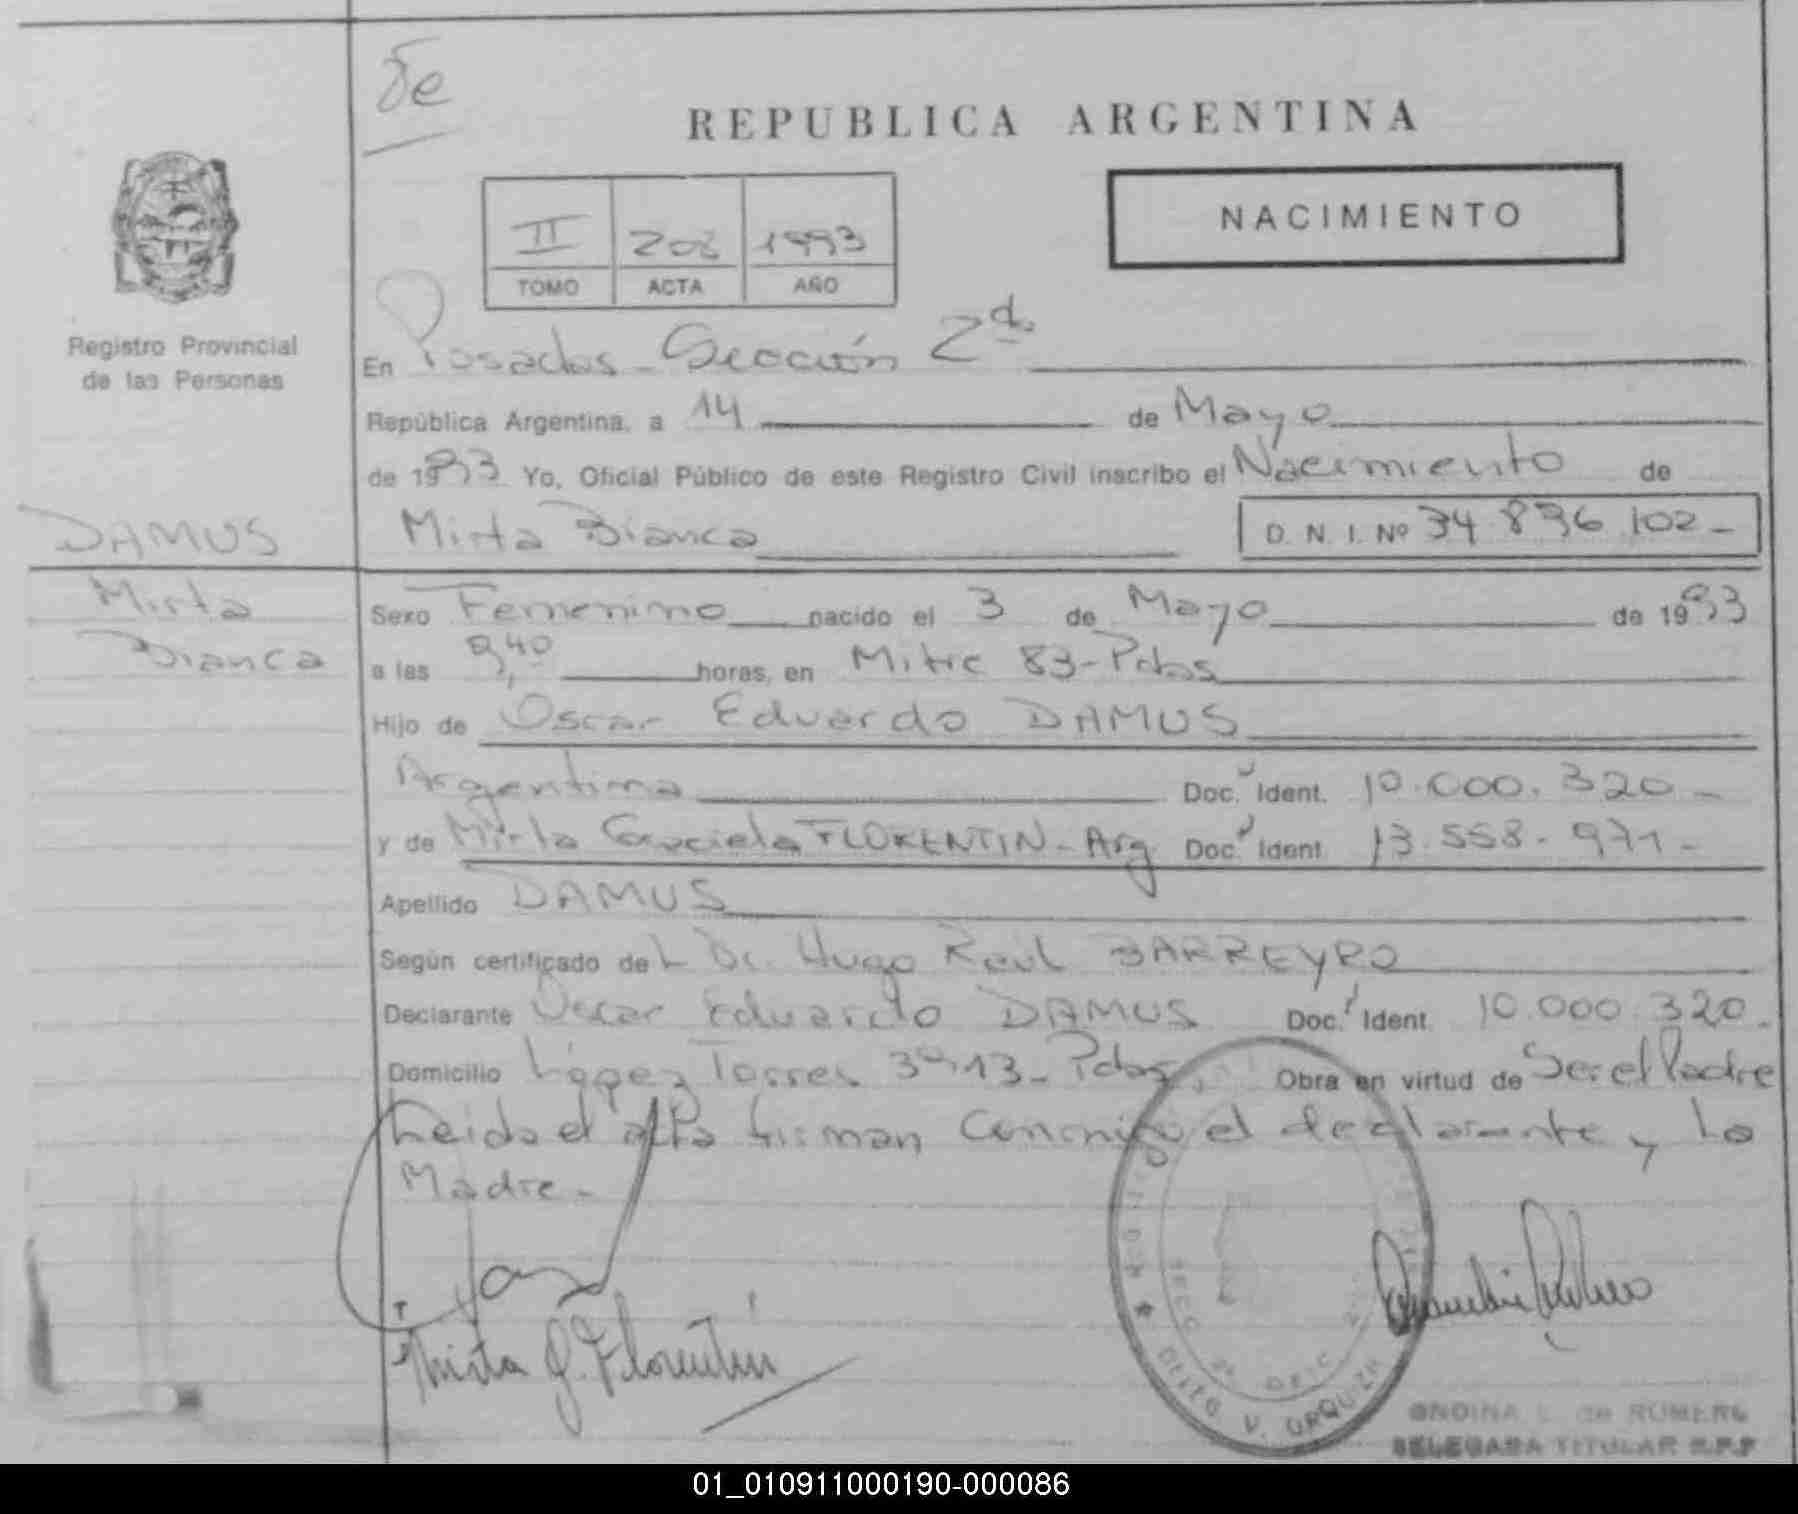 REPUBLICA ARGENTINA
NACIMIENTO
II 208 1993
TOMO ACTA AÑO
Registro Provincial
de las Personas
En Posadas - Sección 2da
República Argentina, a 14 de Mayo
de 1993 Yo, Oficial Público de este Registro Civil inscribo el Nacimiento de
DAMUS Mirta Bianca D. N. I. Nº 34 896 102 -
Mirta
Bianca
Sexo Femenino nacido el 3 de Mayo de 1993
a las 9,40 horas, en Mitre 83 - Pdas
Hijo de Oscar Eduardo DAMUS
Argentina Doc. Ident. 10.000.320 -
y de Mirta Graciela FLORENTIN - Arg Doc. Ident. 13.558.971 -
Apellido DAMUS
Según certificado del Dr. Hugo Raúl BARREYRO
Declarante Oscar Eduardo DAMUS Doc. Ident. 10.000.320 -
Domicilio López Torres 3913 - Pdas, Obra en virtud de Ser el Padre
Leida el acta firman Conmigo el declarante y La
Madre -
Mirta G. Florentín
V. URQUIZA
ONDINA L. de ROMERO
DELEGADA TITULAR R.P.P
01_010911000190-000086